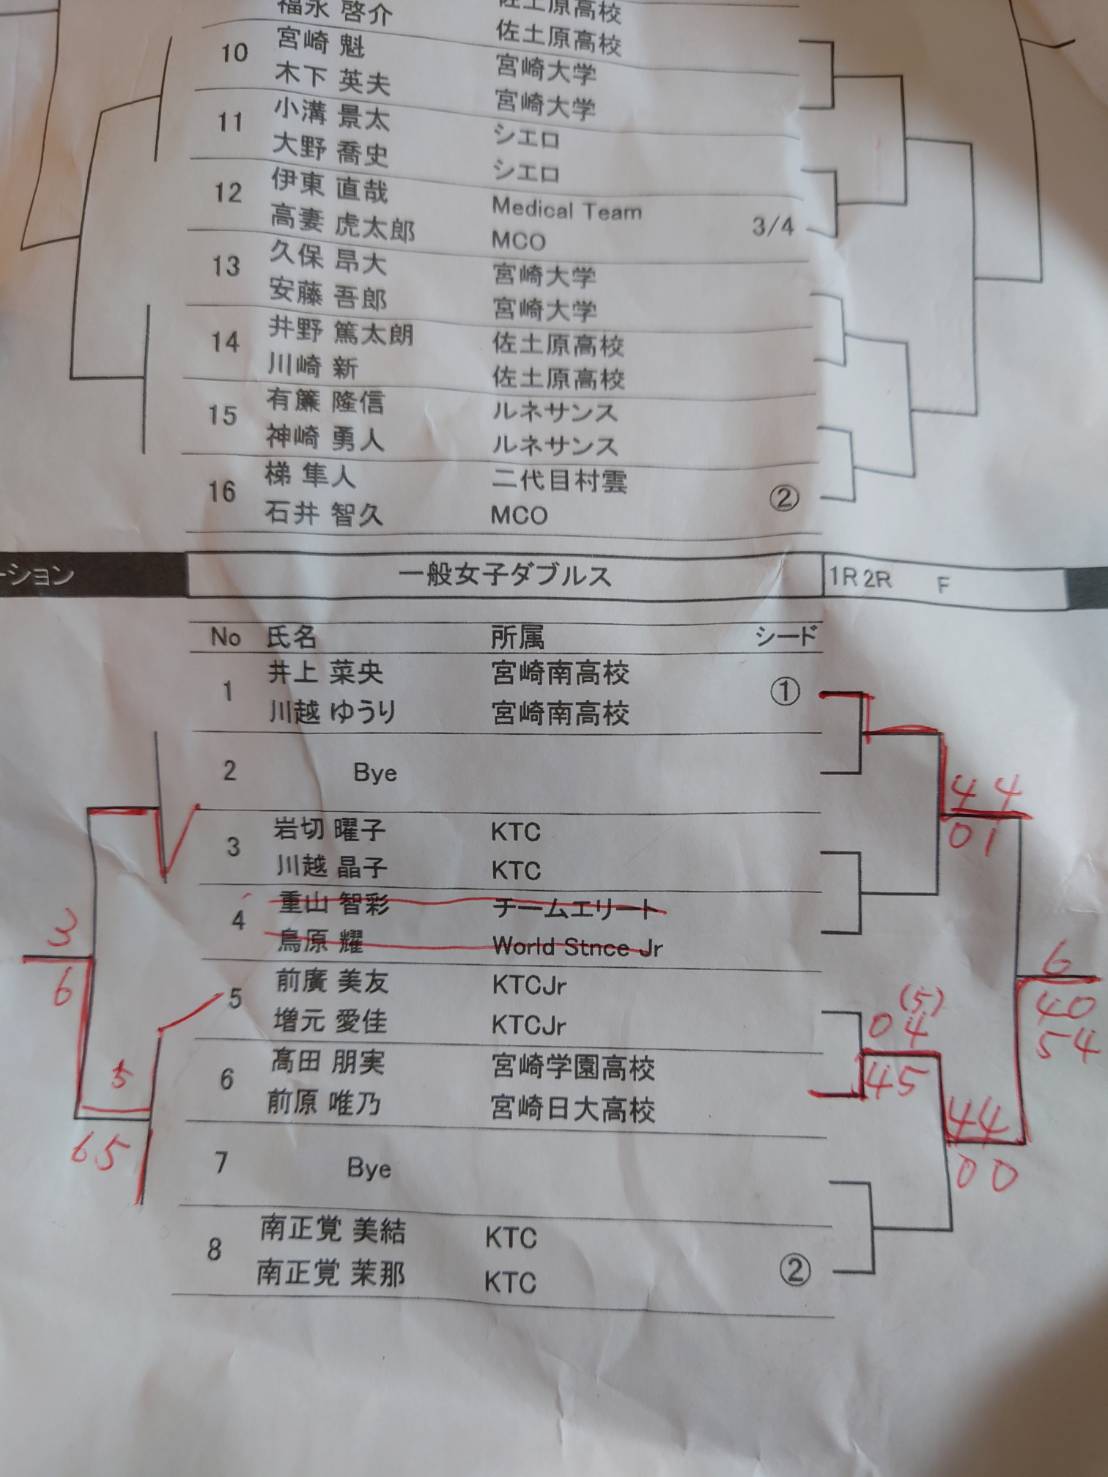 福永 啓介 佐土原高校
佐土原高校
10 宮崎 魁 宮崎大学
木下 英夫 宮崎大学
11 小溝 景太 シエロ
大野 喬史 シエロ
12 伊東 直哉 Medical Team 3/4
高妻 虎太郎 MCO
13 久保 昂大 宮崎大学
安藤 吾郎 宮崎大学
14 井野 篤太朗 佐土原高校
川崎 新 佐土原高校
15 有簾 隆信 ルネサンス
神崎 勇人 ルネサンス
16 梯 隼人 二代目村雲 ②
石井 智久 MCO
ーション 一般女子ダブルス 1R 2R F
No 氏名 所属 シード
1 井上 菜央 宮崎南高校 ①
川越 ゆうり 宮崎南高校
2 Bye
4 4
0 1
3 岩切 曜子 KTC
川越 晶子 KTC
4 重山 智彩 チームエリート
鳥原 耀 World Stnce Jr
3
6
6
40
54
5 前廣 美友 KTCJr
増元 愛佳 KTCJr
(5)
0 4
45
6 髙田 朋実 宮崎学園高校
前原 唯乃 宮崎日大高校
5
65
44
00
7 Bye
8 南正覚 美結 KTC ②
南正覚 茉那 KTC